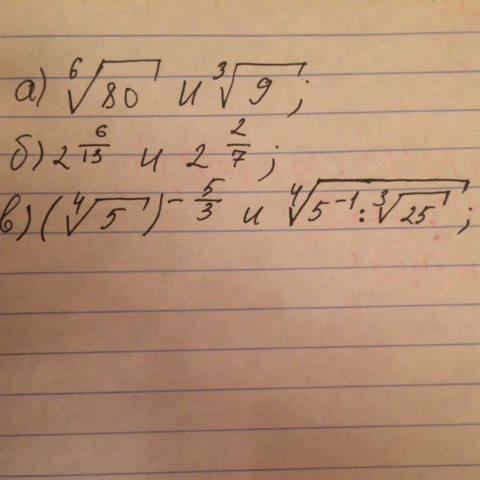 а) ⁶√80 и ³√9;
б) 2^(6/13) и 2^(2/7);
в) (⁴√5)^(-5/3) и ⁴√(5⁻¹ : ³√25);